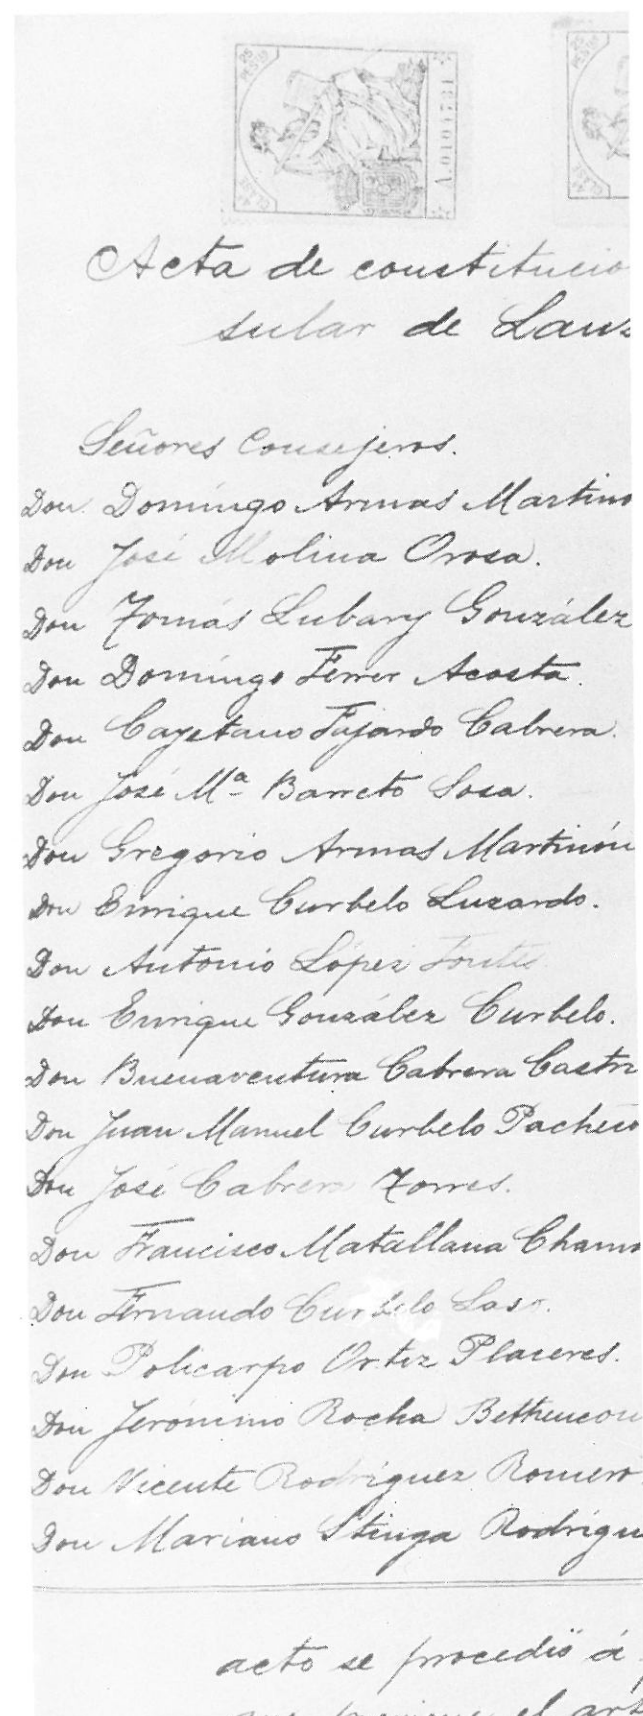 25 PESETAS
A.0101781
Acta de constitucio
sular de Lanz
Señores Consejeros.
Don Domingo Armas Martino
Don José Molina Orosa.
Don Tomás Lubary González
Don Domingo Ferrer Acosta.
Don Cayetano Fajardo Cabrera.
Don José Mª Barreto Sosa.
Don Gregorio Armas Martinón
Don Enrique Curbelo Luzardo.
Don Antonio López Fontes.
Don Enrique González Curbelo.
Don Buenaventura Cabrera Castr
Don Juan Manuel Curbelo Pacheco
Don José Cabrera Torres.
Don Francisco Matallana Cham
Don Fernando Curbelo Laso.
Don Policarpo Ortiz Placeres.
Don Jerónimo Rocha Bethencou
Don Vicente Rodríguez Romero
Don Mariano Stinga Rodrígu
acto se procedió á
el art